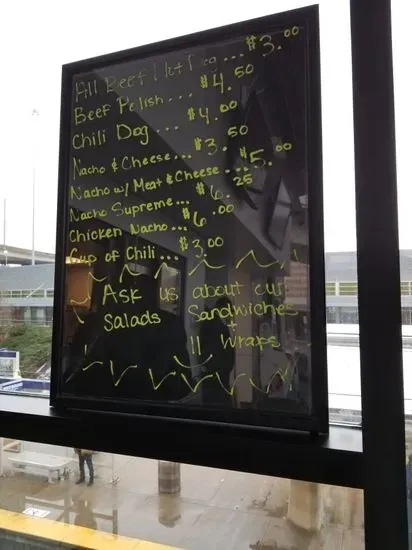 All Beef Hot Dog... $3.00
Beef Polish... $4.50
Chili Dog... $4.00
Nacho & Cheese... $3.50
Nacho w/ Meat & Cheese... $5.00
Nacho Supreme... $6.25
Chicken Nacho... $6.00
Cup of Chili... $3.00
Ask us about our
Salads Sandwiches
+
Wraps